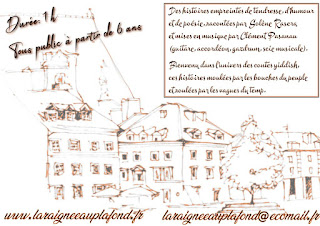 Durée: 1 h
Tous public à partir de 6 ans
Des histoires empreintes de tendresse, d'humour
et de poésie, racontées par Solène Rasera,
et mises en musique par Clément Passanau
(guitare, accordéon, gardrum, scie musicale).
Bienvenu dans l'univers des contes yiddish,
ces histoires moulées par les bouches du peuple
et roulées par les vagues du temp.
www.laraigneeauplafond.fr
laraigneeauplafond@ecomail.fr